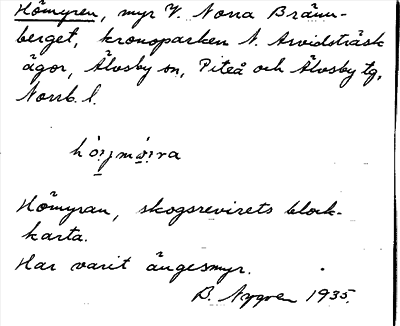 Hömyren, myr V. Norra Bränn-
berget, kronoparken N. Arvidsträsk
ägor, Älvsby sn, Piteå och Älvsby tg,
Norrb. l.
Hömyran, skogsrevirets block-
karta.
Har varit ängesmyr.
B. Nygren 1935.